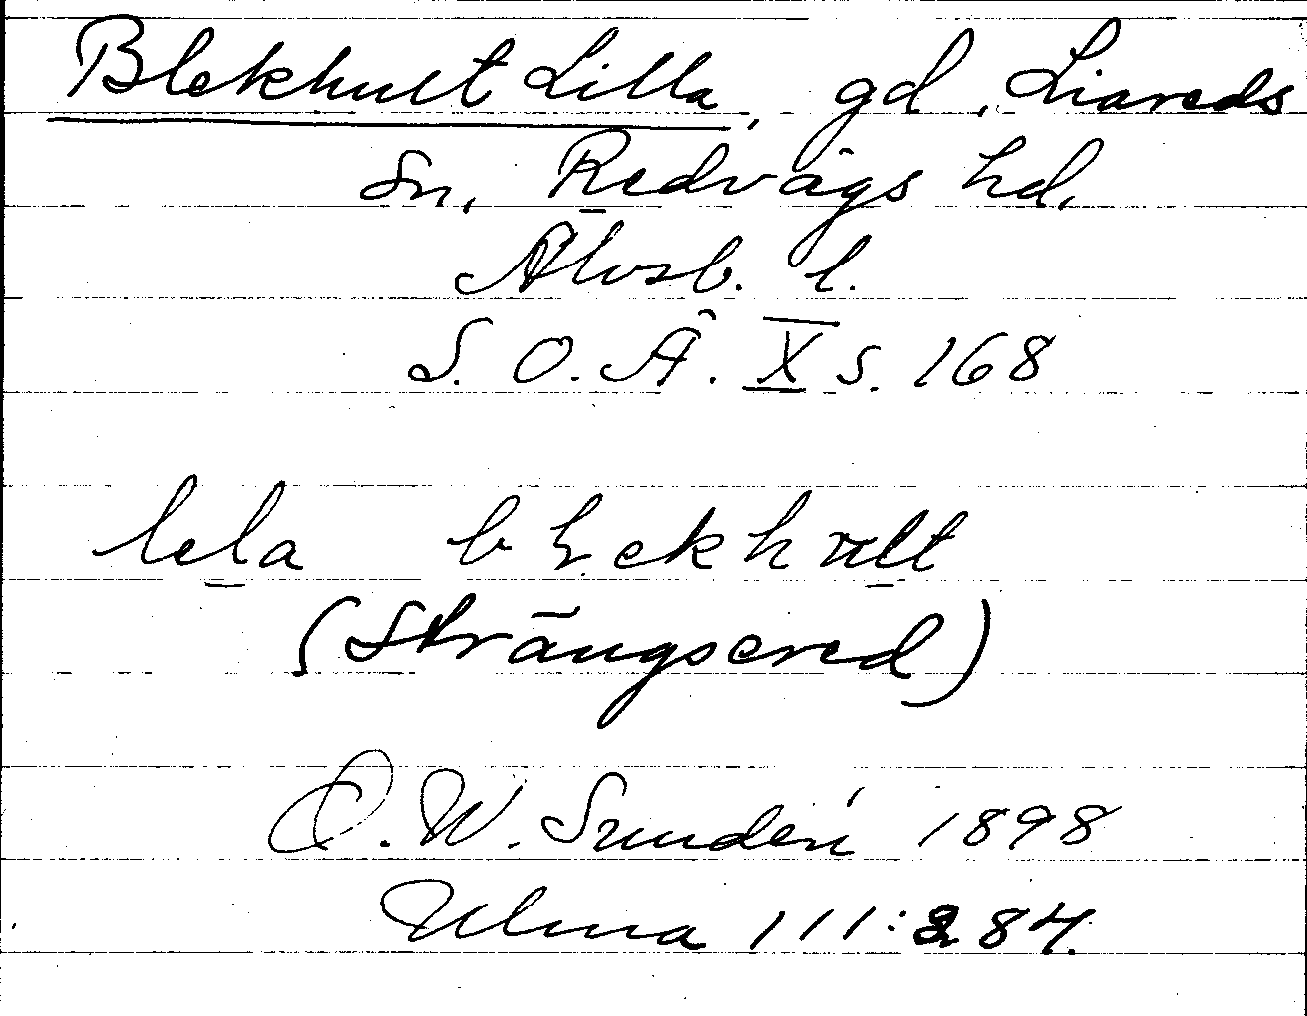 Blekhult Lilla, gd, Liareds
sn, Redvägs hd,
Älvsb. l.
S. O. Ä. X s. 168
lela blekhult
(Strängsered)
D. W. Sundén 1898
Ulma 111:284.